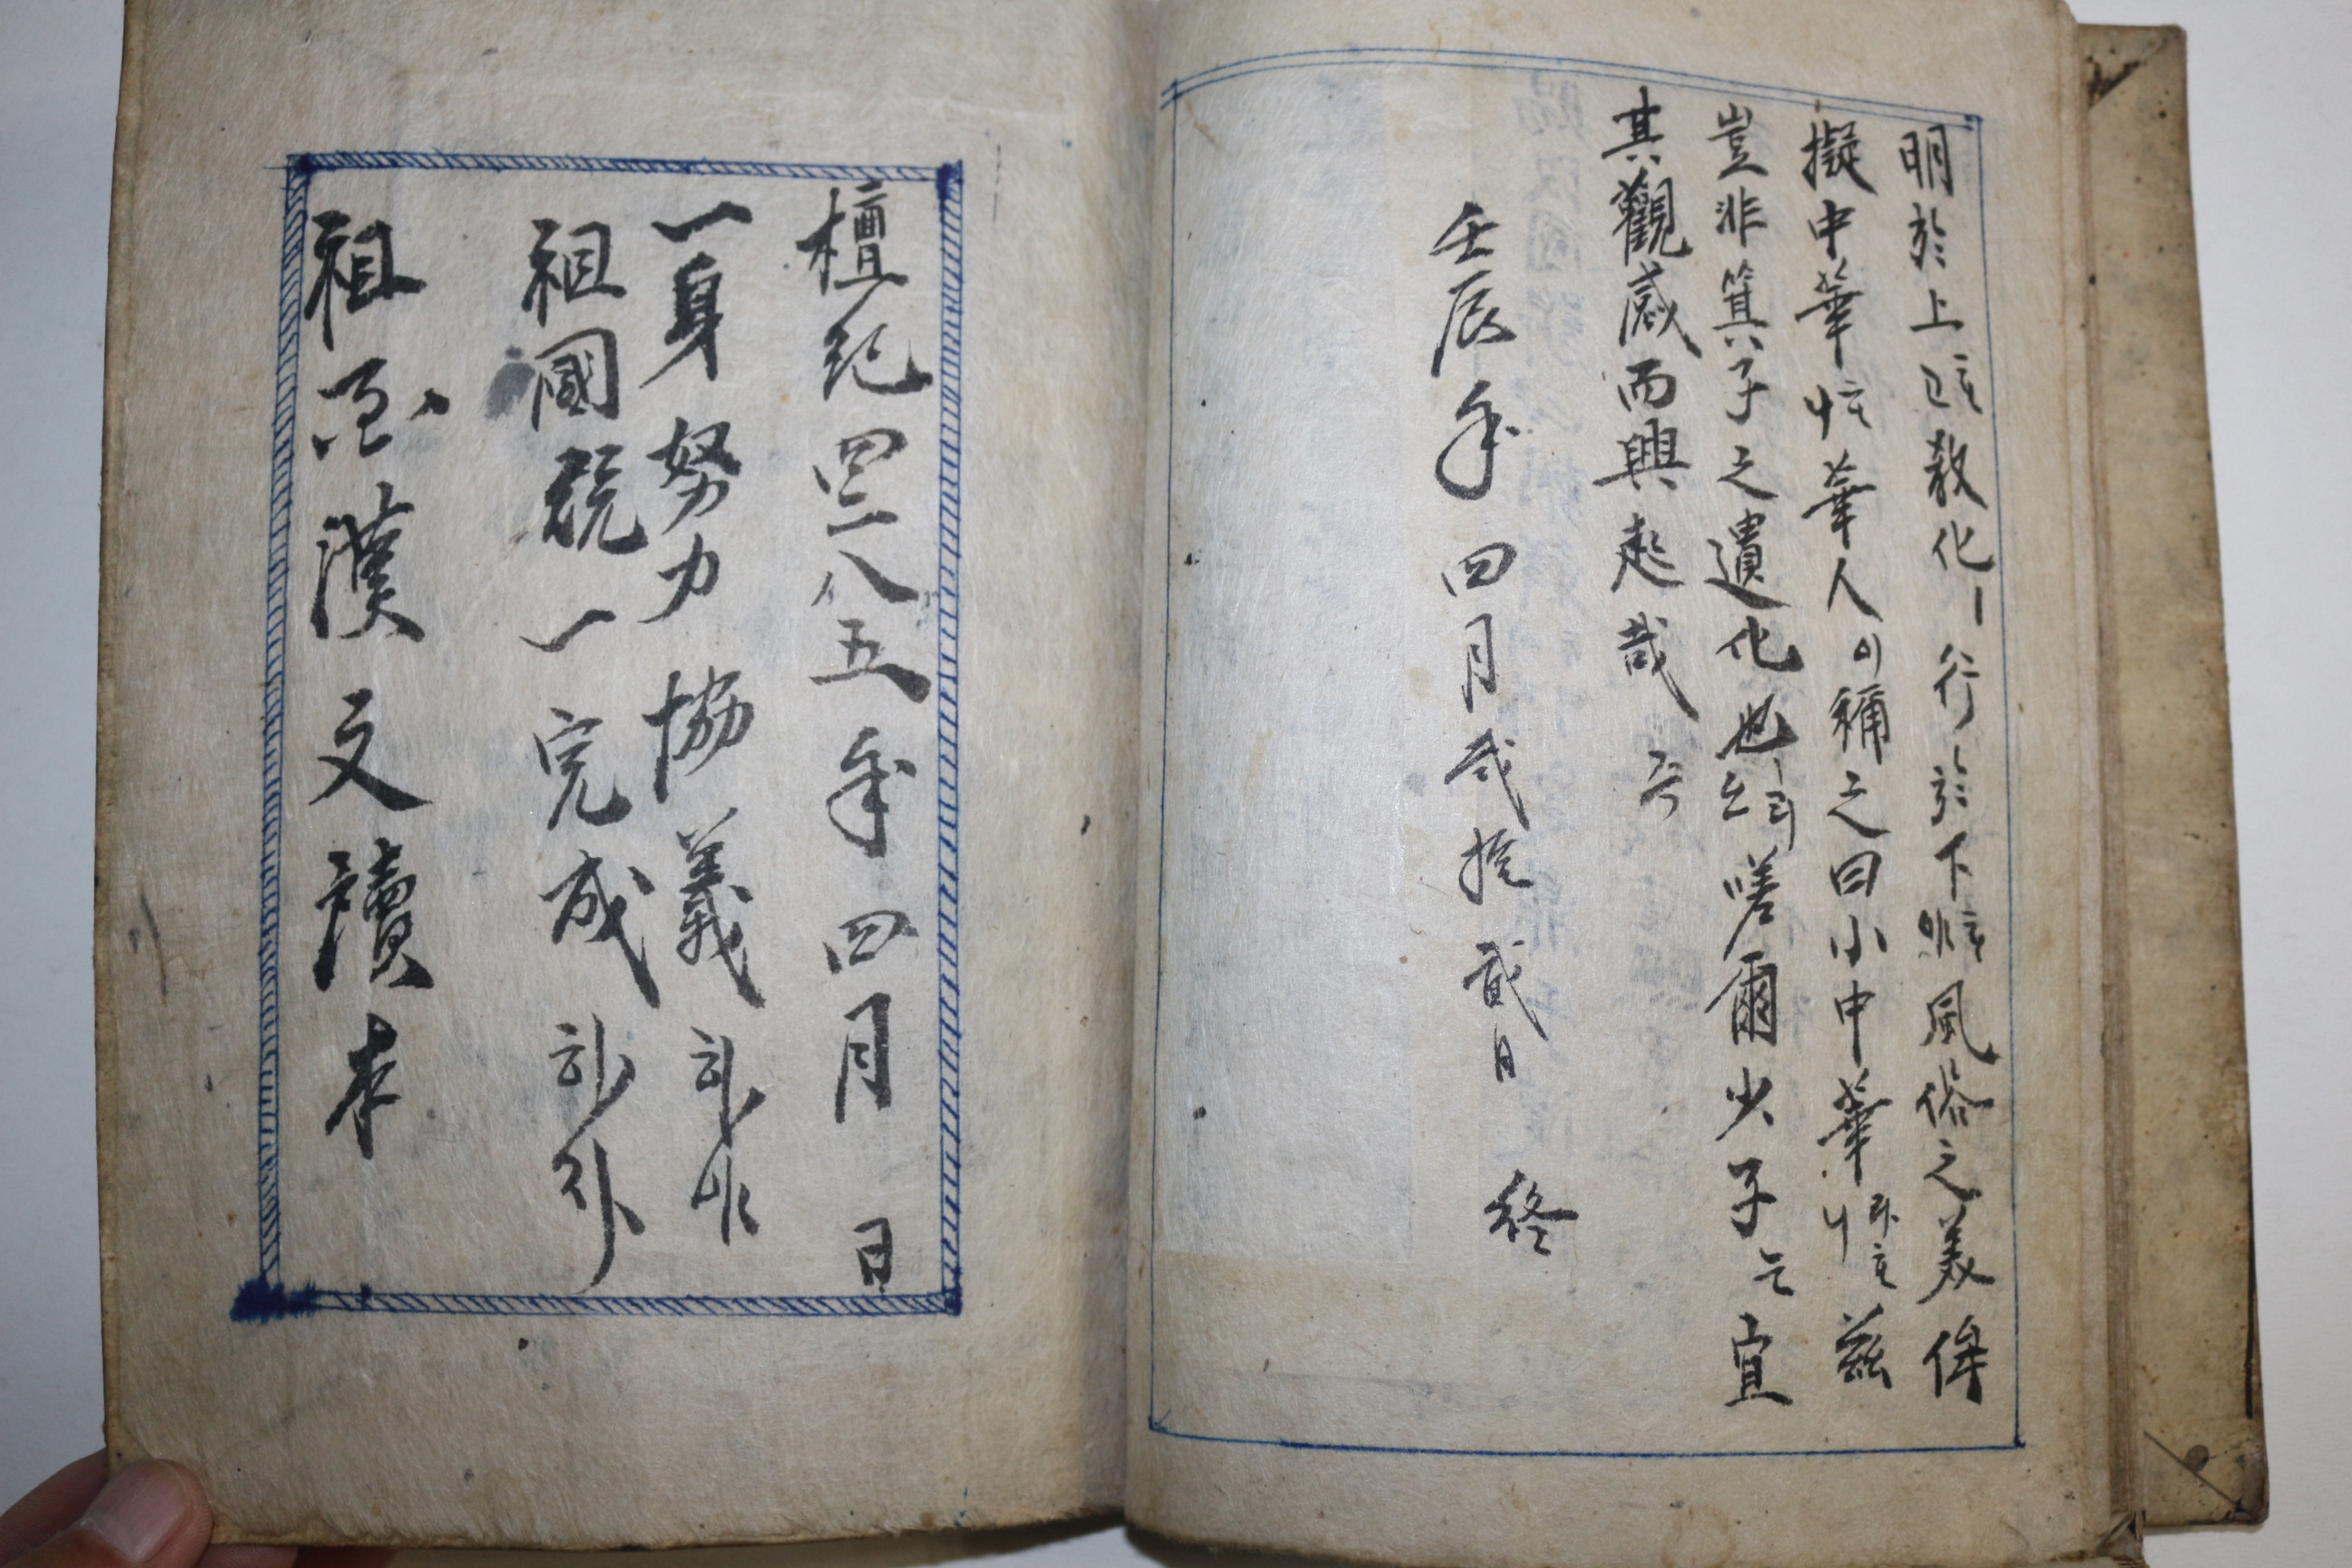 明於上하고敎化ㅣ行於下하야風俗之美侔
擬中華하니華人이稱之曰小中華라하니玆
豈非箕子之遺化也리오嗟爾少子는宜
其觀感而興起哉
壬辰年四月弍拾貳日 終
檀紀四二八五年四月 日
一身努力 協義하야
祖國統一完成하라
祖漢文讀本